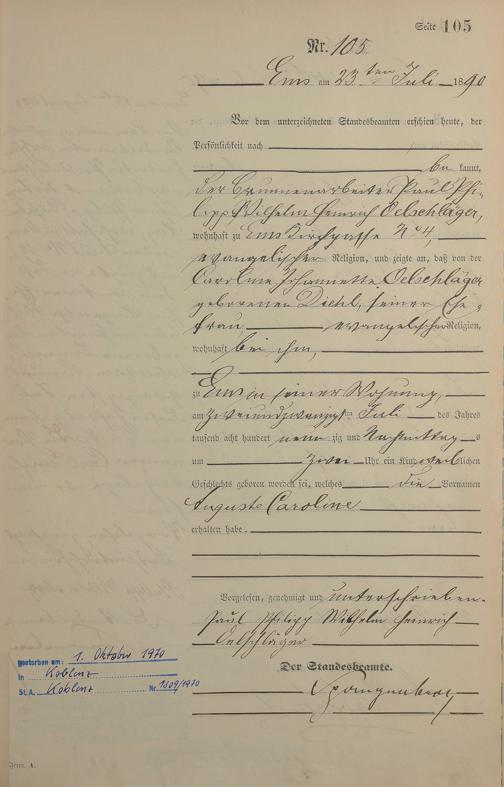 Seite 105
Nr. 105.
Ems am 23 ten Juli 1890
Vor dem unterzeichneten Standesbeamten erschien heute, der
Persönlichkeit nach
be kannt,
der Brunnenarbeiter Paul Phi-
lipp Wilhelm Heinrich Oelschläger,
wohnhaft zu Ems Kirchgasse No 4,
evangelischer Religion, und zeigte an, daß von der
Caroline Johannette Oelschläger
geborenen Diehl, seiner Ehe-
frau, evangelischer Religion,
wohnhaft bei ihm,
zu Ems in seiner Wohnung,
am zweiundzwanzigsten Juli des Jahres
tausend acht hundert neun zig und Nachmittag s
um zwei Uhr ein Kind weiblichen
Geschlechts geboren worden sei, welches die Vornamen
Auguste Caroline
erhalten habe.
Vorgelesen, genehmigt und unterschrieben.
Paul Philipp Wilhelm Heinrich
Oelschläger
Der Standesbeamte.
Spangenberg
gestorben am: 1. Oktober 1970
in Koblenz
St.A. Koblenz Nr. 1809/1970
Form. A.